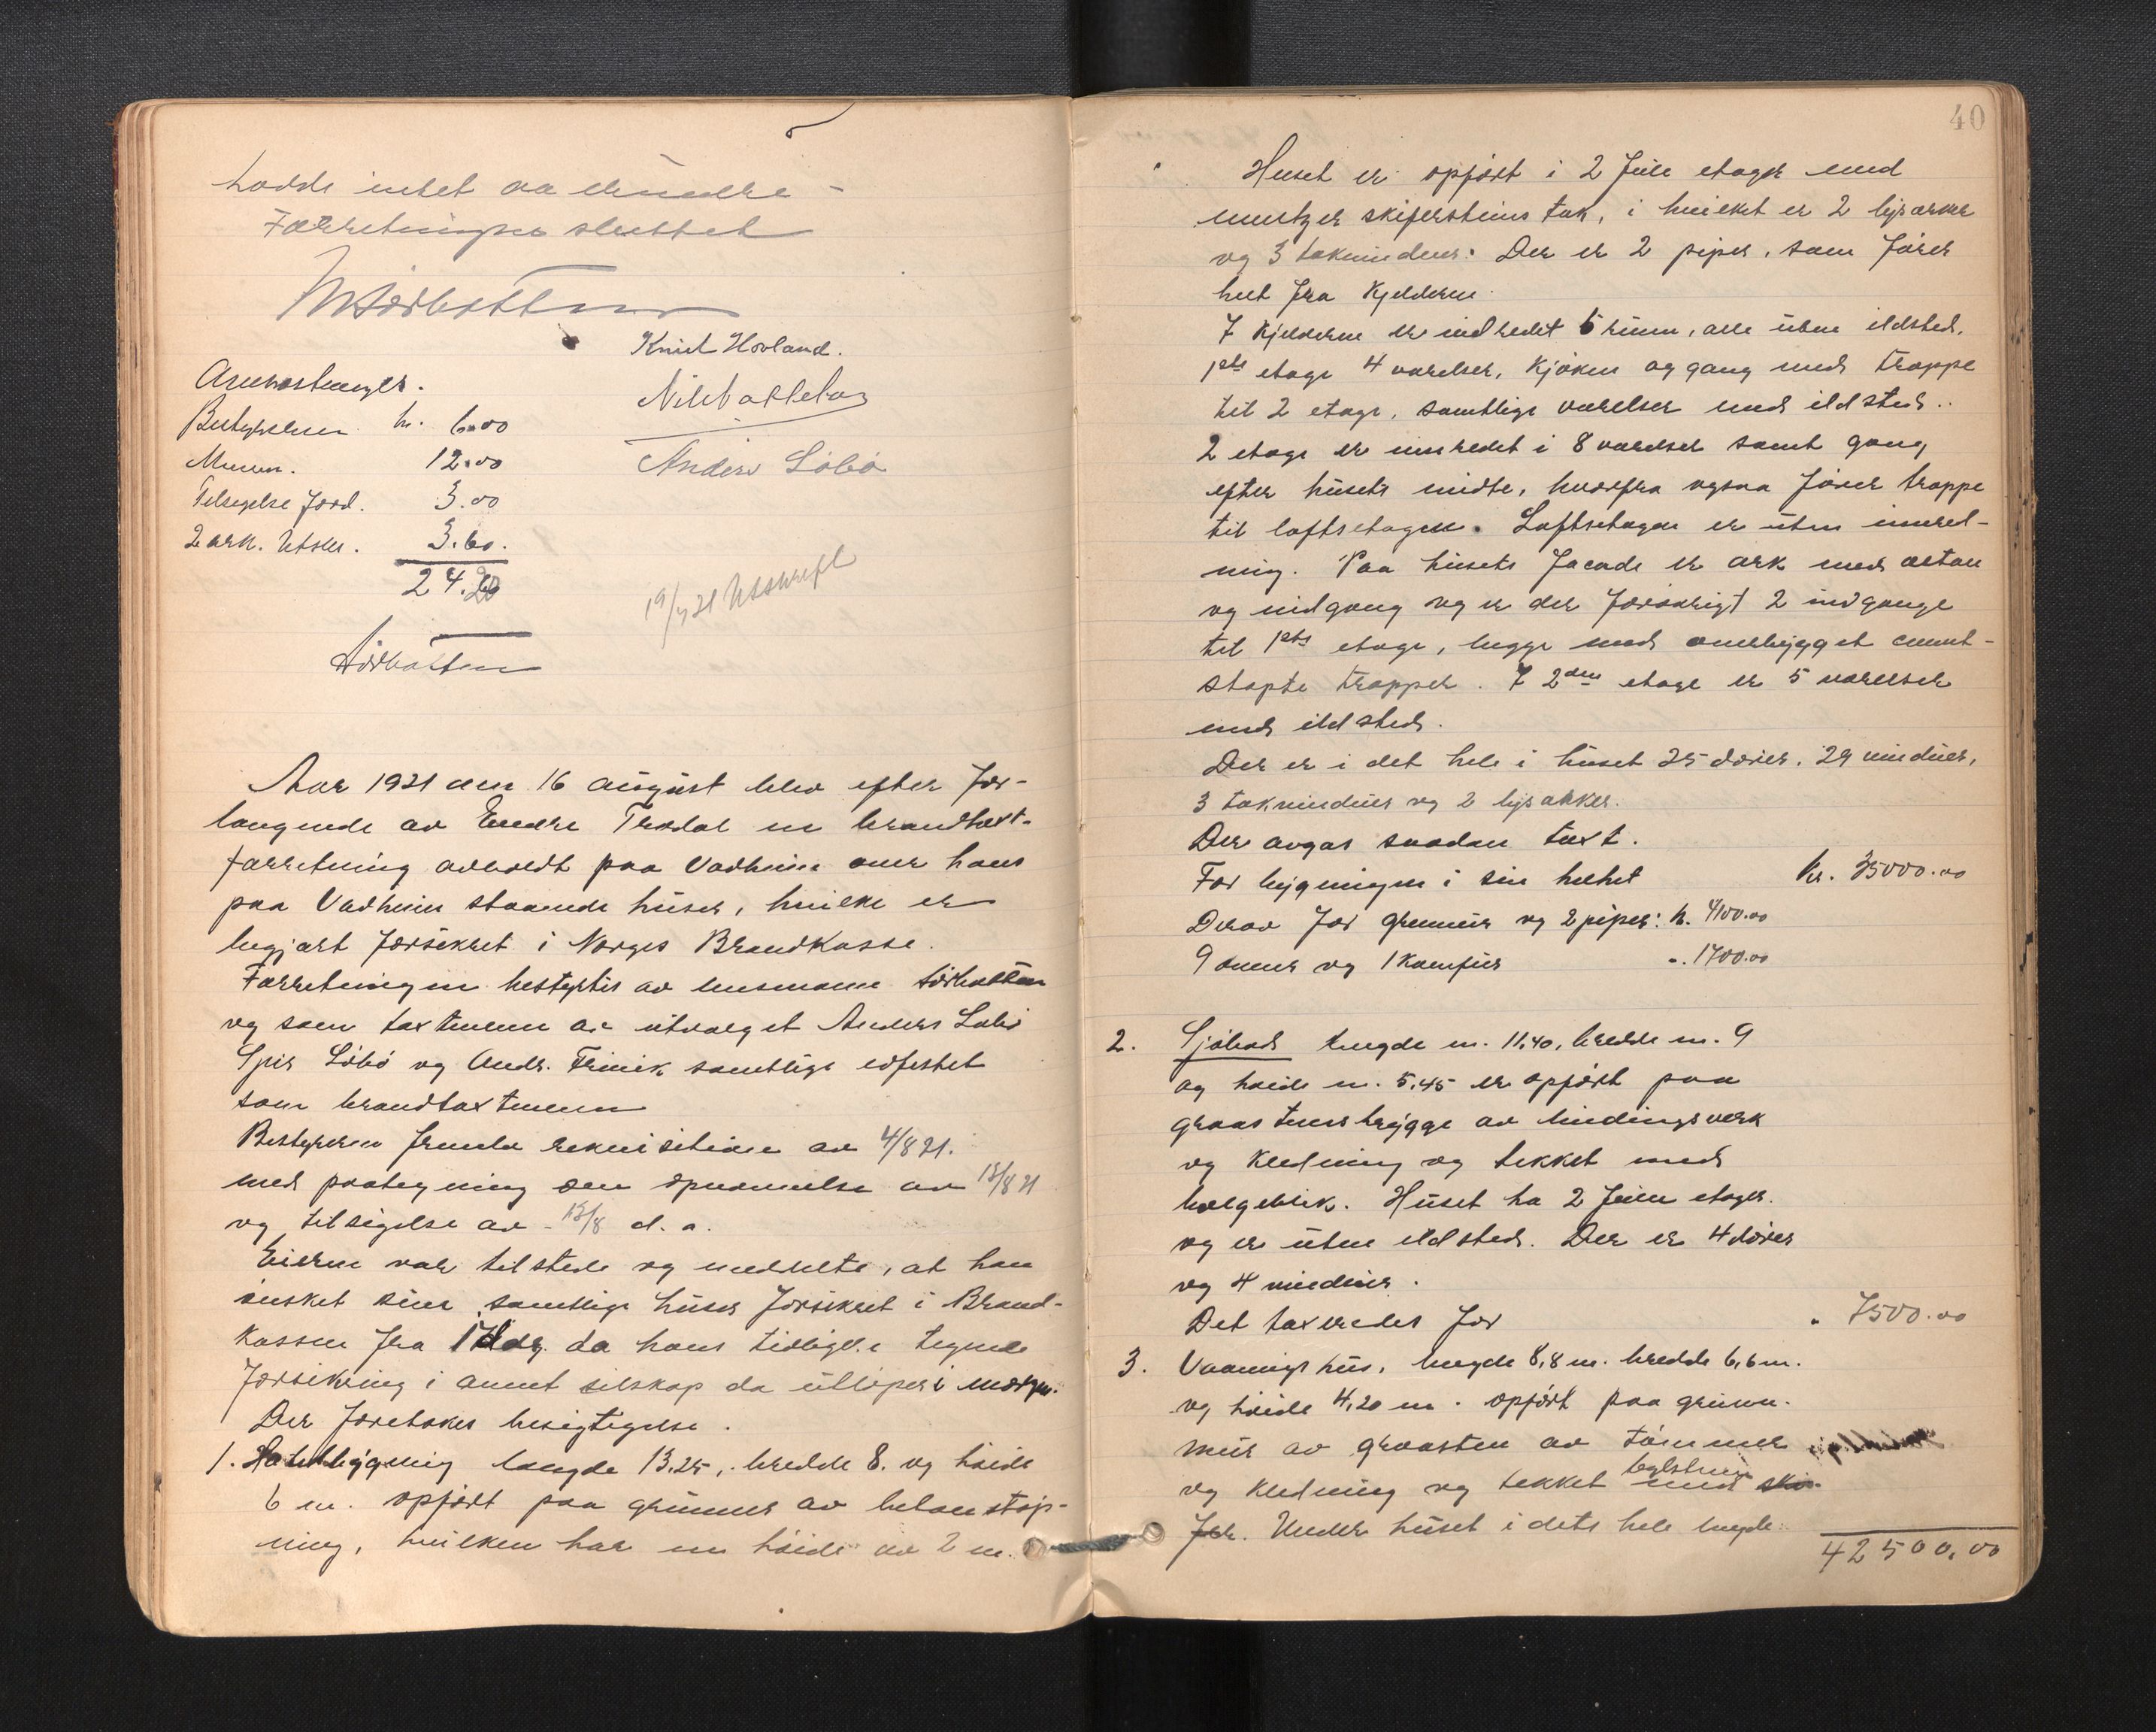 hadde intet aa erindre -
Forretningen sluttet
Knut Hovland.
Anders Lobö
Omkostninger.
Bestyrelsen kr. 6.00
Menn. 12.00
Tilsigelse Ford. 3.00
2 ark. Utskr. 3.60.
24.60
19/9 21 Utskrift
Sörbotten
Aar 1921 den 16 august blev efter for-
langende av Endre Tredal en brandtaxt-
forretning avholdt paa Vadheim over hans
paa Vadheim staaende huser, hvilke er
begjært forsikret i Norges Brandkasse.
Forretningen bestyrtes av lensmann Sörbotten
og som taxtmenn er utvalget Anders Lobö
Lobö og Andr. samtlige edfestet
som brandtaxtmenn
Bestyreren fremla rekvisition av 4/8 21.
med paategning om opnevnelse av 13/8 21
og tilsigelse av - 13/8 d. a.
Eieren var tilstede og meddelte, at han
önsket sine samtlige huser forsikret i Brand-
kassen fra 17 da hans tidligere tegnede
forsikring i annet selskap da utlöper i morgen.
Der foretokes besigtigelse.
1. Hotelbygning længde 13,25, bredde 8. og höide
6 m. opfört paa grunmur av betonstöp-
ning, hvilken har en höide av 2 m.
40
Huset er opfört i 2 fulle etager med
skiferstens tak, i hvilket er 2 lysarker
og 3 takvinduer. Der er 2 piper, som förer
helt fra Kjelderen.
I Kjelderen er indredet 5 rum, alle uten ildsted.
1ste etage 4 værelser, Kjöken og gang med trappe
til 2 etage, samtlige værelser med ildsted..
2 etage er innredet i 8 værelser samt gang
efter husets midte, hvorfra ogsaa förer trappe
til loftsetagen. Loftsetagen er uten innred-
ning. Paa husets facade er ark med altan
og indgang og er der forövrigt 2 indgange
til 1ste etage, begge med overbygget cement-
stöpte trapper. I 2den etage er 5 værelser
med ildsted.
Der er i det hele i huset 25 dörer, 29 vinduer,
3 takvinduer og 2 lysarker.
Der avgas saadan taxt.
For bygningen i sin helhet kr. 35000.00
Derav for grunmur og 2 piper: kr. 4100.00
9 ovner og 1 komfur ". 1700.00
2. Sjöbod længde m. 11,40, bredde m. 9
og höide m. 5,45 er opfört paa
graastensbrygge av bindingsverk
og Kledning og tekket med
bølgeblik. Huset ha 2 fulle etager.
og er uten ildsted. Der er 4 dörer
og 4 vinduer.
Det taxeredes for " 7500.00
3. Vaanings hus, længde 8,8 m. bredde 6,6 m.
og höide 4,20 m. opfört paa grunn-
mur av graasten av tömmer
og Kledning og tekket med teglsten ski-
fer. Under huset i dets hele lengde
42500,00